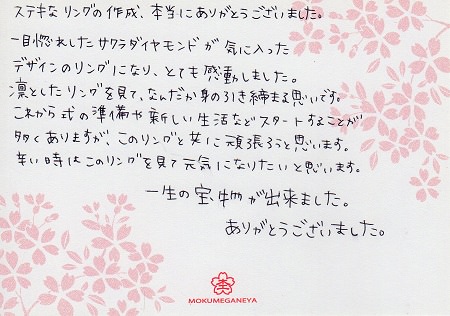 ステキなリングの作成、本当にありがとうございました。
一目惚れしたサクラダイヤモンドが気に入った
デザインのリングになり、とても感動しました。
凛としたリングを見て、なんだか身の引き締まる思いです。
これから式の準備や新しい生活などスタートすることが
多くありますが、このリングと共に頑張ろうと思います。
辛い時はこのリングを見て元気になりたいと思います。
一生の宝物が出来ました。
ありがとうございました。
MOKUMEGANEYA